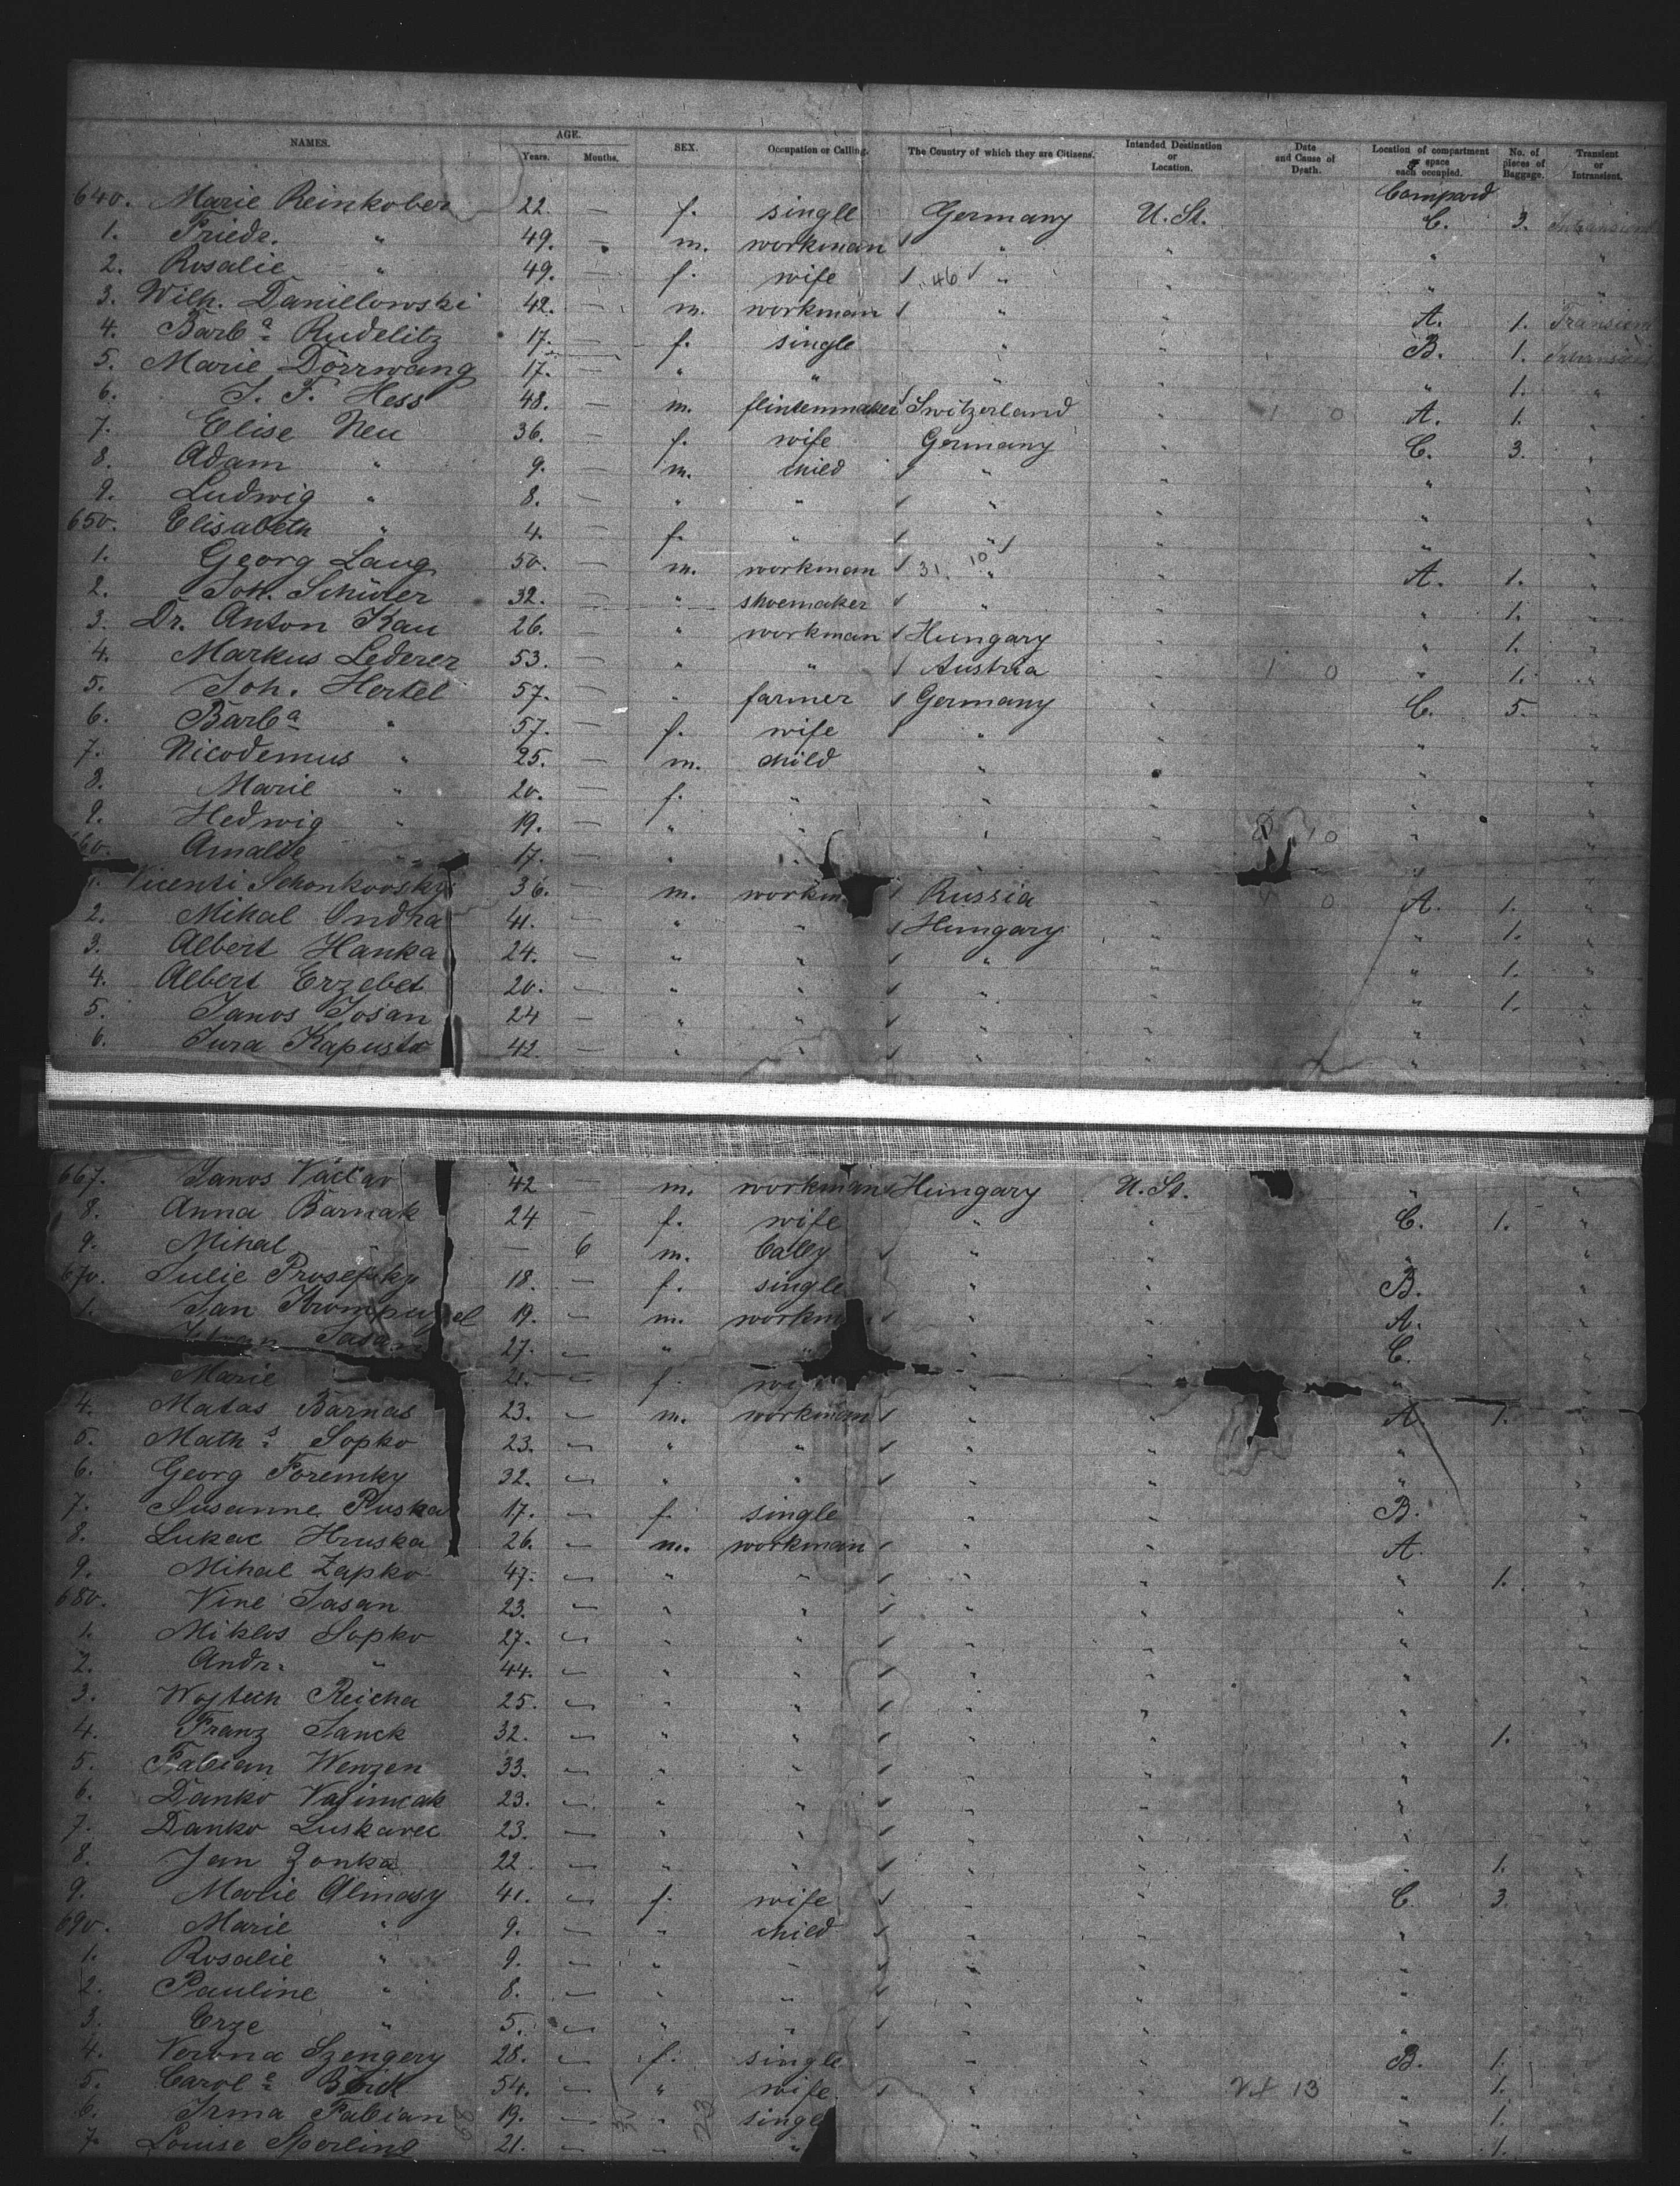 NAMES. AGE. Years. Months. SEX. Occupation or Calling. The Country of which they are Citizens. Intended Destination or Location. Date and Cause of Death. Location of compartment or space each occupied. No. of pieces of Baggage. Transient or Intransient.
Compard
640. Marie Reinkober 22. — f. single Germany U. St. C. 3. Intransient
1. Friede. " 49. — m. workman " " " "
2. Rosalie " 49. — f. wife 46 " " " "
3. Wilh. Danielowski 42. — m. workman " " A. 1. Transient
4. Barbª Rudelitz 17. — f. single " " B. 1. Intransient
5. Marie Dörrwang 17. — " " " " " 1. "
6. J. F. Hess 48. — m. flintenmaker Switzerland " 1 0 A. 1. "
7. Elise Neu 36. — f. wife Germany " C. 3. "
8. Adam " 9. — m. child " " " "
9. Ludwig " 8. — " " " " " "
650. Elisabeth " 4. — f. " " " " "
1. Georg Laug 50. — m. workman 31. 10 " " A. 1. "
2. Joh. Schüler 32. — " shoemaker " " " 1. "
3. Dr. Anton Kau 26. — " workman Hungary " " 1. "
4. Markus Lederer 53. — " " Austria " 1 0 " 1. "
5. Joh. Hertel 57. — " farmer Germany " C. 5. "
6. Barbª " 57. — f. wife " " " "
7. Nicodemus " 25. — m. child " " " "
8. Marie " 20. — f. " " " " "
9. Hedwig " 19. — " " " " 10 " "
60. Amalie " 17. — " " " "
1. Vicenti Schonkovsky 36. — m. workm Russia " 0 A. 1. "
2. Mikal Ondha 41. — " " Hungary " " 1. "
3. Albert Hanka 24. — " " " " " 1. "
4. Albert Erzebet 20. — " " " " " 1. "
5. Janos Josan 24 — " " " " " "
6. Jura Kapusta 42. — " " " " " "
667. Janos Václav 42 — m. workman Hungary U. St. " "
8. Anna Barnak 24 — f. wife " " C. 1. "
9. Mihal " — 6 m. baby " " " "
670. Julie 18. — f. single " " B. "
1. Jan 19. — m. workm " " A. "
27. — " " " " C. "
Marie 21. — f. wi " " " "
4. Matas Barnas 23. — m. workman " " A. 1. "
5. Mathˢ Sopko 23. — " " " " " "
6. Georg Foremky 32. — " " " " " "
7. Susanne Puska 17. — f. single " " B. "
8. Lukac Hruska 26. — m. workman " " A. "
9. Mihal Zapko 47. — " " " " " 1. "
680. Vine Jasan 23. — " " " " " "
1. Miklos Sopko 27. — " " " " " "
2. Andr. " 44. — " " " " " "
3. Wojtech Reicha 25. — " " " " " "
4. Franz Janek 32. — " " " " " 1. "
5. Fabian Wenzen 33. — " " " " " "
6. Danko 23. — " " " " " "
7. Danko Luskavec 23. — " " " " " "
8. Jan Zonka 22. — " " " " " 1. "
9. Marie Almasy 41. — f. wife " " C. 3. "
690. Marie " 9. — " child " " " "
1. Rosalie " 9. — " " " " " "
2. Pauline " 8. — " " " " " "
3. Erze " 5. — " " " " " "
4. Verona Szengery 28. — f. single " " B. 1. "
5. Carolᵉ 54. — " wife " " 13 " 1. "
6. Irma Fabian 19. — " singl " " " 1. "
7. Louise Sperling 21. — " " " " " 1. "